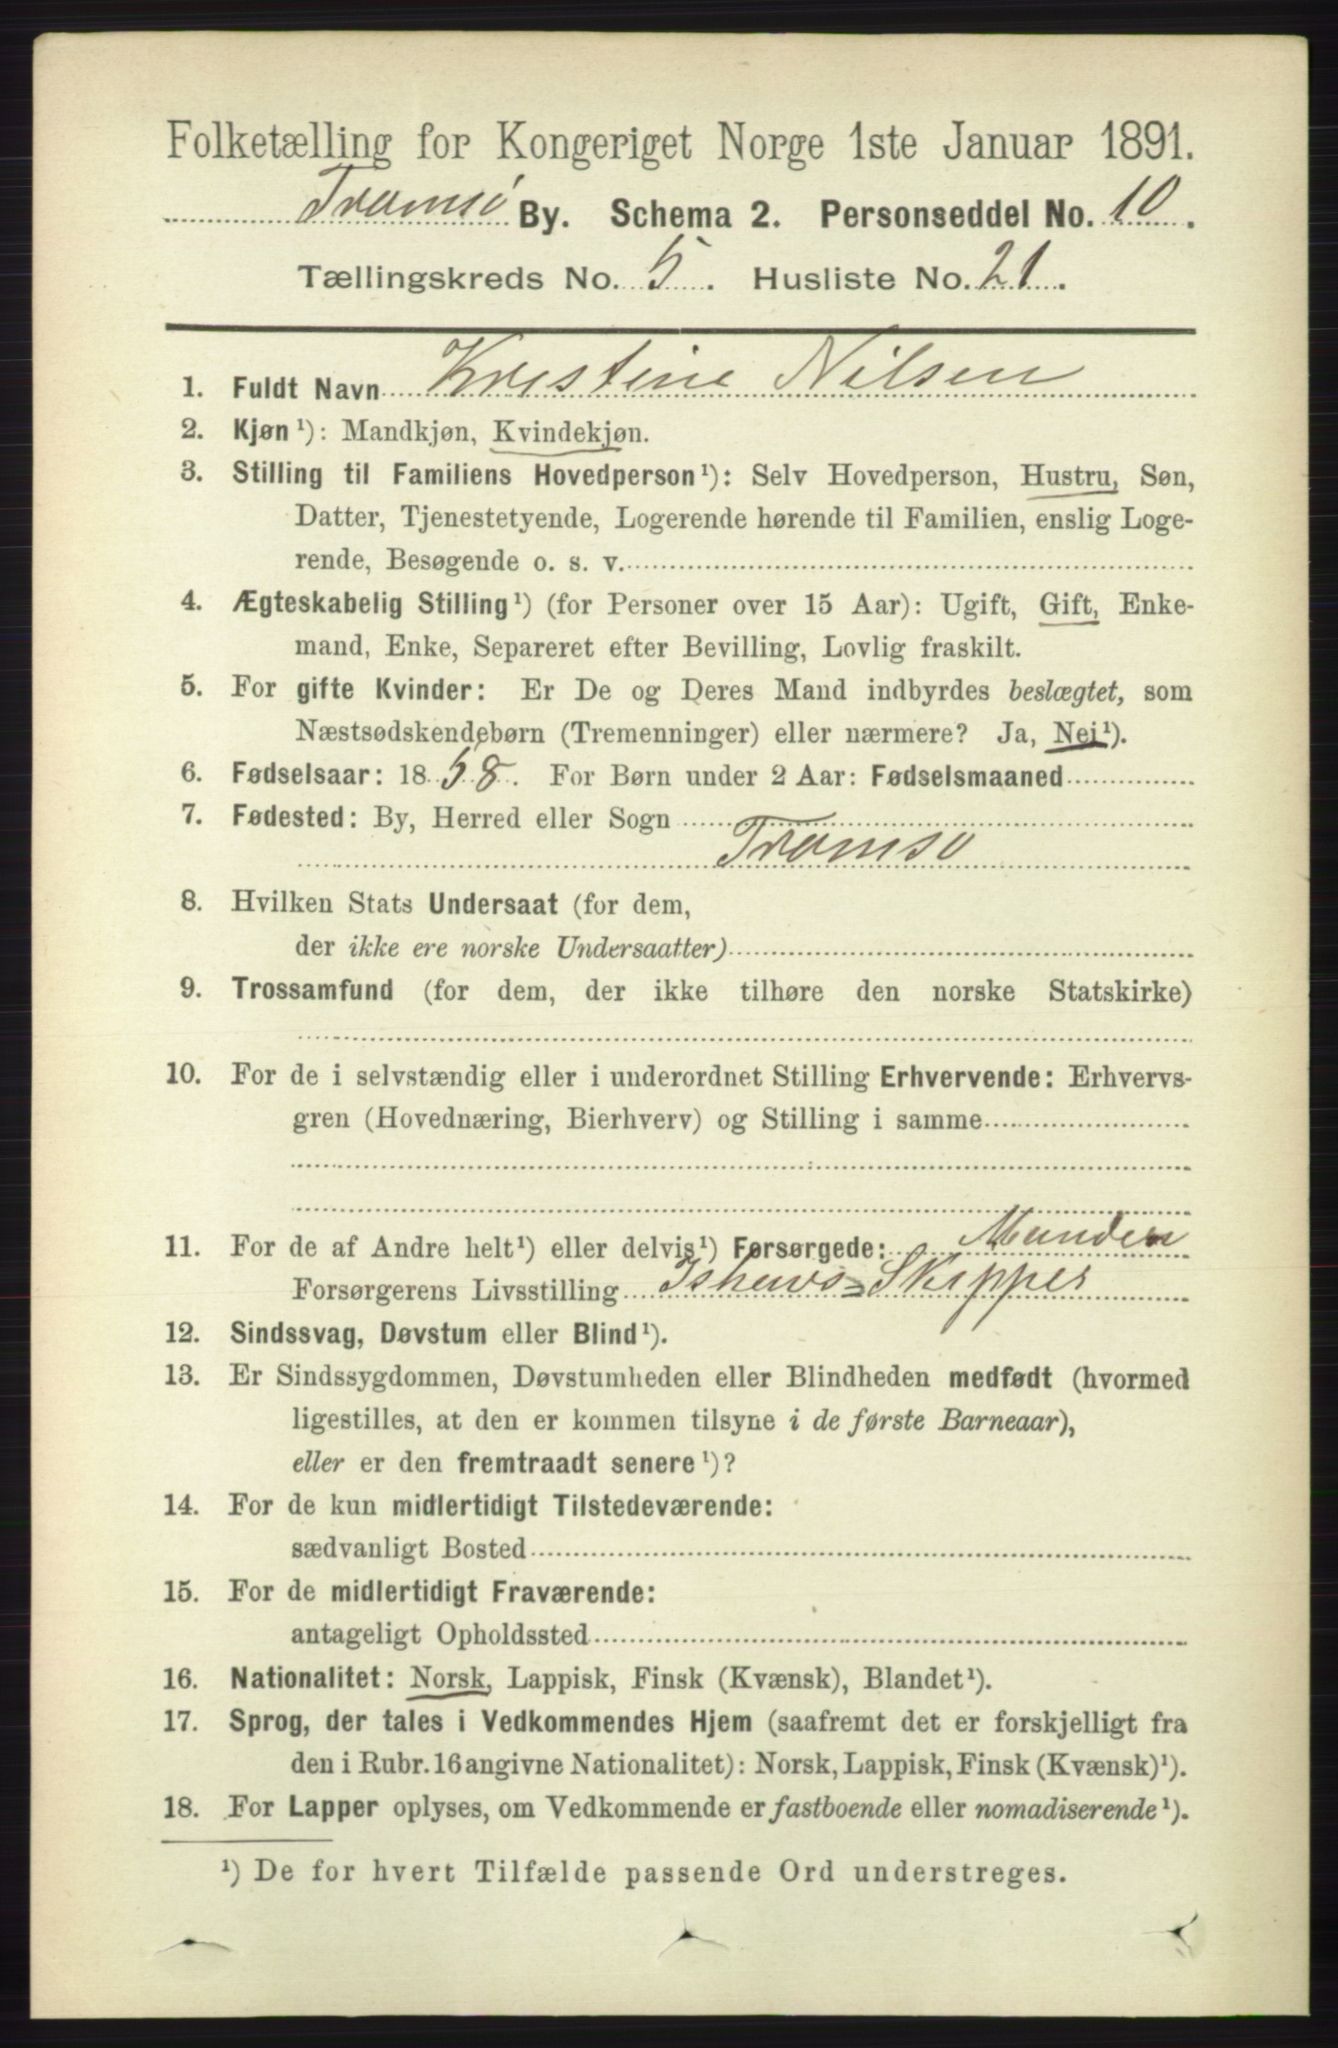 Folketælling for Kongeriget Norge 1ste Januar 1891.
Tromsø By. Schema 2. Personseddel No. 10.
Tællingskreds No. 5. Husliste No. 21.
1. Fuldt Navn Kristine Nilsen
2. Kjøn ¹): Mandkjøn, Kvindekjøn.
3. Stilling til Familiens Hovedperson¹): Selv Hovedperson, Hustru, Søn,
Datter, Tjenestetyende, Logerende hørende til Familien, enslig Loge-
rende, Besøgende o. s. v.
4. Ægteskabelig Stilling¹) (for Personer over 15 Aar): Ugift, Gift, Enke-
mand, Enke, Separeret efter Bevilling, Lovlig fraskilt.
5. For gifte Kvinder: Er De og Deres Mand indbyrdes beslægtet, som
Næstsødskendebørn (Tremenninger) eller nærmere? Ja, Nei¹).
6. Fødselsaar: 1858. For Børn under 2 Aar: Fødselsmaaned
7. Fødested: By, Herred eller Sogn
Tromsø
8. Hvilken Stats Undersaat (for dem,
der ikke ere norske Undersaatter)
9. Trossamfund (for dem, der ikke tilhøre den norske Statskirke)
10. For de i selvstændig eller i underordnet Stilling Erhvervende: Erhvervs-
gren (Hovednæring, Bierhverv) og Stilling i samme
11. For de af Andre helt¹) eller delvis¹) Forsørgede: Manden
Forsørgerens Livsstilling Ishavs=Skipper
12. Sindssvag, Døvstum eller Blind¹).
13. Er Sindssygdommen, Døvstumheden eller Blindheden medfødt (hvormed
ligestilles, at den er kommen tilsyne i de første Barneaar),
eller er den fremtraadt senere ¹)?
14. For de kun midlertidigt Tilstedeværende:
sædvanligt Bosted
15. For de midlertidigt Fraværende:
antageligt Opholdssted
16. Nationalitet: Norsk, Lappisk, Finsk (Kvænsk), Blandet¹).
17. Sprog, der tales i Vedkommendes Hjem (saafremt det er forskjelligt fra
den i Rubr. 16 angivne Nationalitet): Norsk, Lappisk, Finsk (Kvænsk)¹).
18. For Lapper oplyses, om Vedkommende er fastboende eller nomadiserende¹).
¹) De for hvert Tilfælde passende Ord understreges.